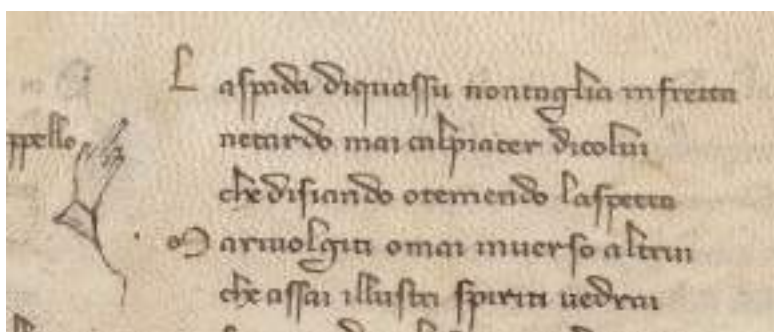 L aspada diquassu nontaglia infretta
ppello
netardo mai calpiacer dicolui
che disiando otemendo laspetta
M arivolgiti omai inverso altrui
che assai illustri spiriti vedrai